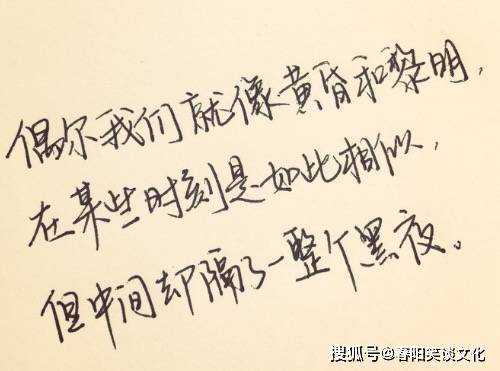 偶尔我们就像黄昏和黎明，
在某些时刻是如此相似，
但中间却隔了一整个黑夜。
搜狐号@春阳笑谈文化